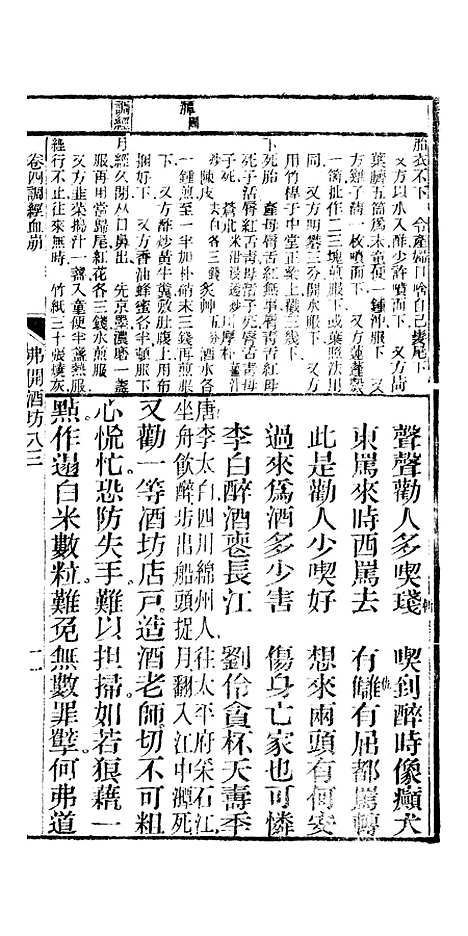 調經
胎衣不下 令產婦口啥自己髮尾下
又方以水入醋少許噴面下 又方荷
葉臍五箇爲末童便一鍾沖服下 又
方雞子清一枚噴面下 又方蓮蓬殼
一箇扯作二三塊煎服下 或葉煎法用
同 又方明礬三分開水服下 又方
用竹桿子中堂正樑上戳三戳下
下死胎 產母唇舌紅無事唇舌青紅母
死子活唇紅舌青母活子死唇青舌青母
子死 蒼朮米泔浸炒 川厚朴
陳皮去白各三錢 炙艸五分 酒水各
一鍾煎至一半加朴硝末三錢再煎服
下 又方酢炒黃牛糞放肚腹上用布
捆好下 又方香油蜂蜜各半頓服下
月經久閉從口鼻出 先京墨濃磨一盞
服再用當歸尾紅花各三錢水煎服
又方韭菜搗汁一盞入童便半盞熱服
經行不止往來無時 竹紙三十張燒灰
聲聲勸人多喫琖 喫到醉時像癲犬
東罵來時西罵去 有讎有屈都罵轉
此是勸人少喫好 想來兩頭有何安
過來爲酒多少害 傷身亡家也可憐
李白醉酒喪長江 劉伶貪杯夭壽年
唐李太白四川綿州人往太平府采石江
坐舟飲醉步出船頭捉月翻入江中潭死
又勸一等酒坊店戸造酒老師切不可粗
心悅忙恐防失手難以担掃如若狠藉一
點作遢白米數粒難免無數罪孽何弗道
卷四調經血崩 弗開酒坊八三